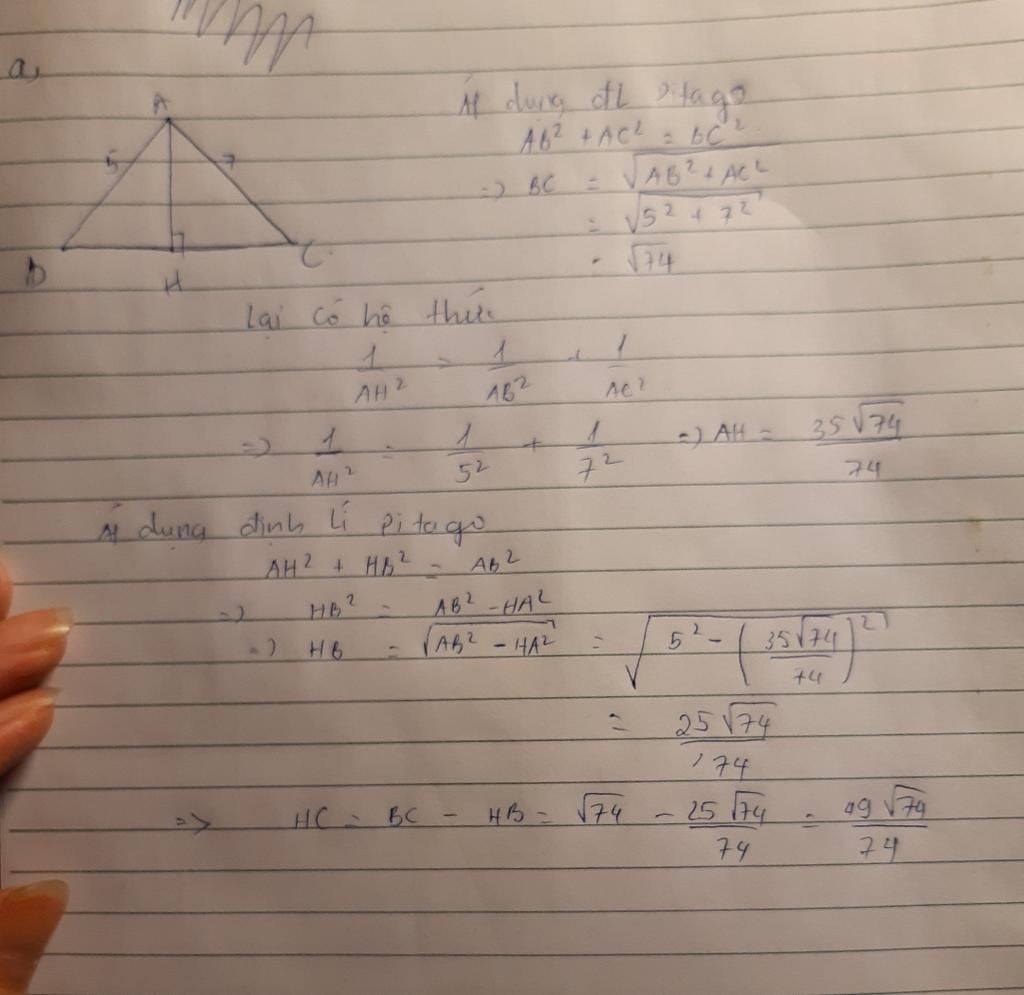 a,
A
5
7
B
H
C
Áp dụng đL Pitago
AB² + AC² = BC²
=> BC = √(AB² + AC²)
= √(5² + 7²)
= √74
lại có hệ thức
1/AH² = 1/AB² + 1/AC²
=> 1/AH² = 1/5² + 1/7² => AH = 35√74/74
Áp dụng định lí pitago
AH² + HB² = AB²
=> HB² = AB² - HA²
=> HB = √(AB² - HA²) = √(5² - (35√74/74)²)
= 25√74/74
=> HC = BC - HB = √74 - 25√74/74 = 49√74/74